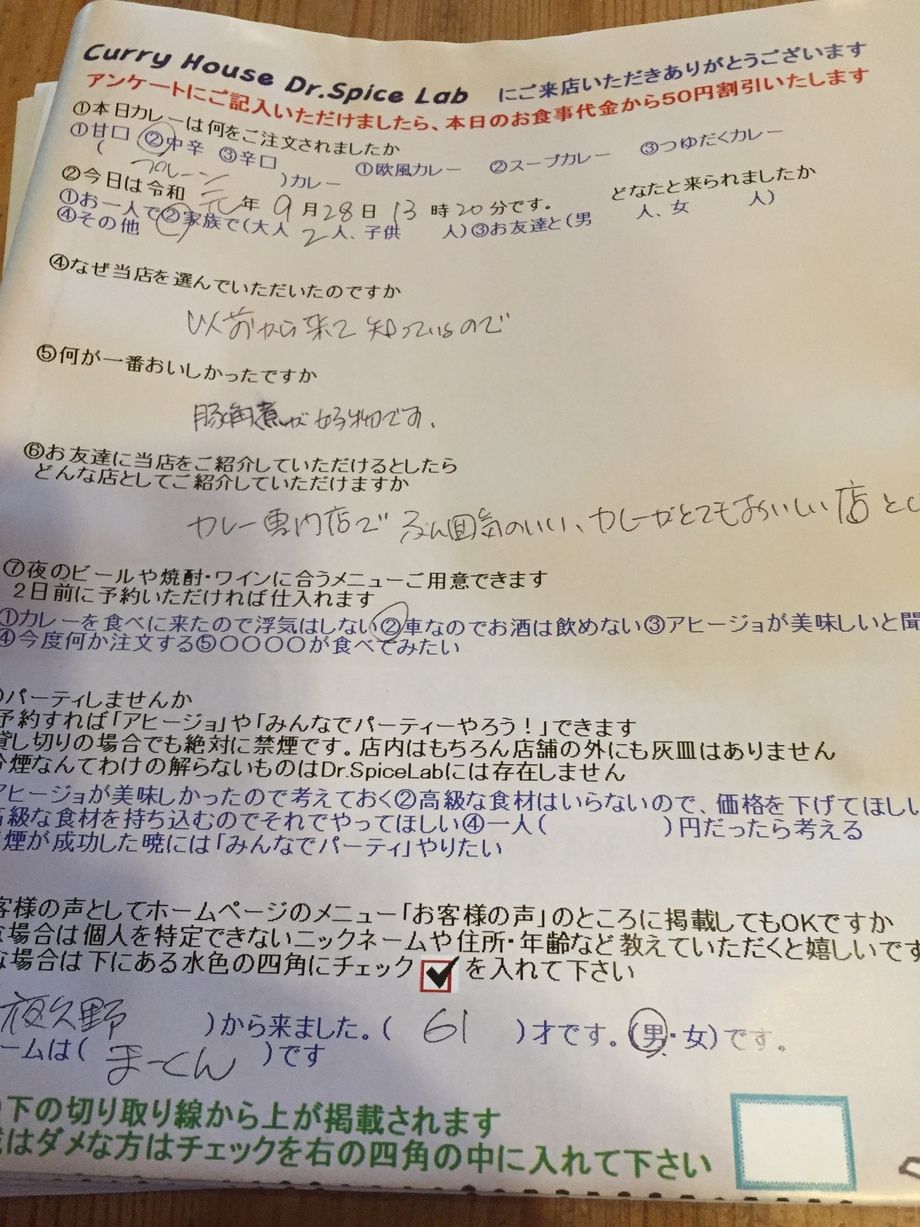 Curry House Dr.Spice Lab にご来店いただきありがとうございます
アンケートにご記入いただけましたら、本日のお食事代金から50円割引いたします
①本日カレーは何をご注文されましたか
①甘口 ②中辛 ③辛口 ①欧風カレー ②スープカレー ③つゆだくカレー
( プレーン )カレー
②今日は令和 元 年 9 月 28 日 13 時 20 分です。 どなたと来られましたか
①お一人で ② 家族で(大人 2 人、子供 人)③お友達と(男 人、女 人)
④その他
④なぜ当店を選んでいただいたのですか
以前から来て知っているので
⑤何が一番おいしかったですか
豚角煮が好物です。
⑥お友達に当店をご紹介していただけるとしたら
どんな店としてご紹介していただけますか
カレー専門店で ふん囲気のいい、カレーがとてもおいしい店 とし
⑦夜のビールや焼酎・ワインに合うメニューご用意できます
2日前に予約いただければ仕入れます
①カレーを食べに来たので浮気はしない②車なのでお酒は飲めない③アヒージョが美味しいと聞
④今度何か注文する⑤〇〇〇〇が食べてみたい
パーティしませんか
予約すれば「アヒージョ」や「みんなでパーティーやろう!」できます
貸し切りの場合でも絶対に禁煙です。店内はもちろん店舗の外にも灰皿はありません
分煙なんてわけの解らないものはDr.SpiceLabには存在しません
アヒージョが美味しかったので考えておく②高級な食材はいらないので、価格を下げてほしい
高級な食材を持ち込むのでそれでやってほしい④一人( )円だったら考える
煙が成功した暁には「みんなでパーティ」やりたい
客様の声としてホームページのメニュー「お客様の声」のところに掲載してもOKですか
な場合は個人を特定できないニックネームや住所・年齢など教えていただくと嬉しいです
な場合は下にある水色の四角にチェック ✔ を入れて下さい
夜久野 )から来ました。( 61 )才です。(男・女)です。
ームは( まーくん )です
下の切り取り線から上が掲載されます
はダメな方はチェックを右の四角の中に入れて下さい